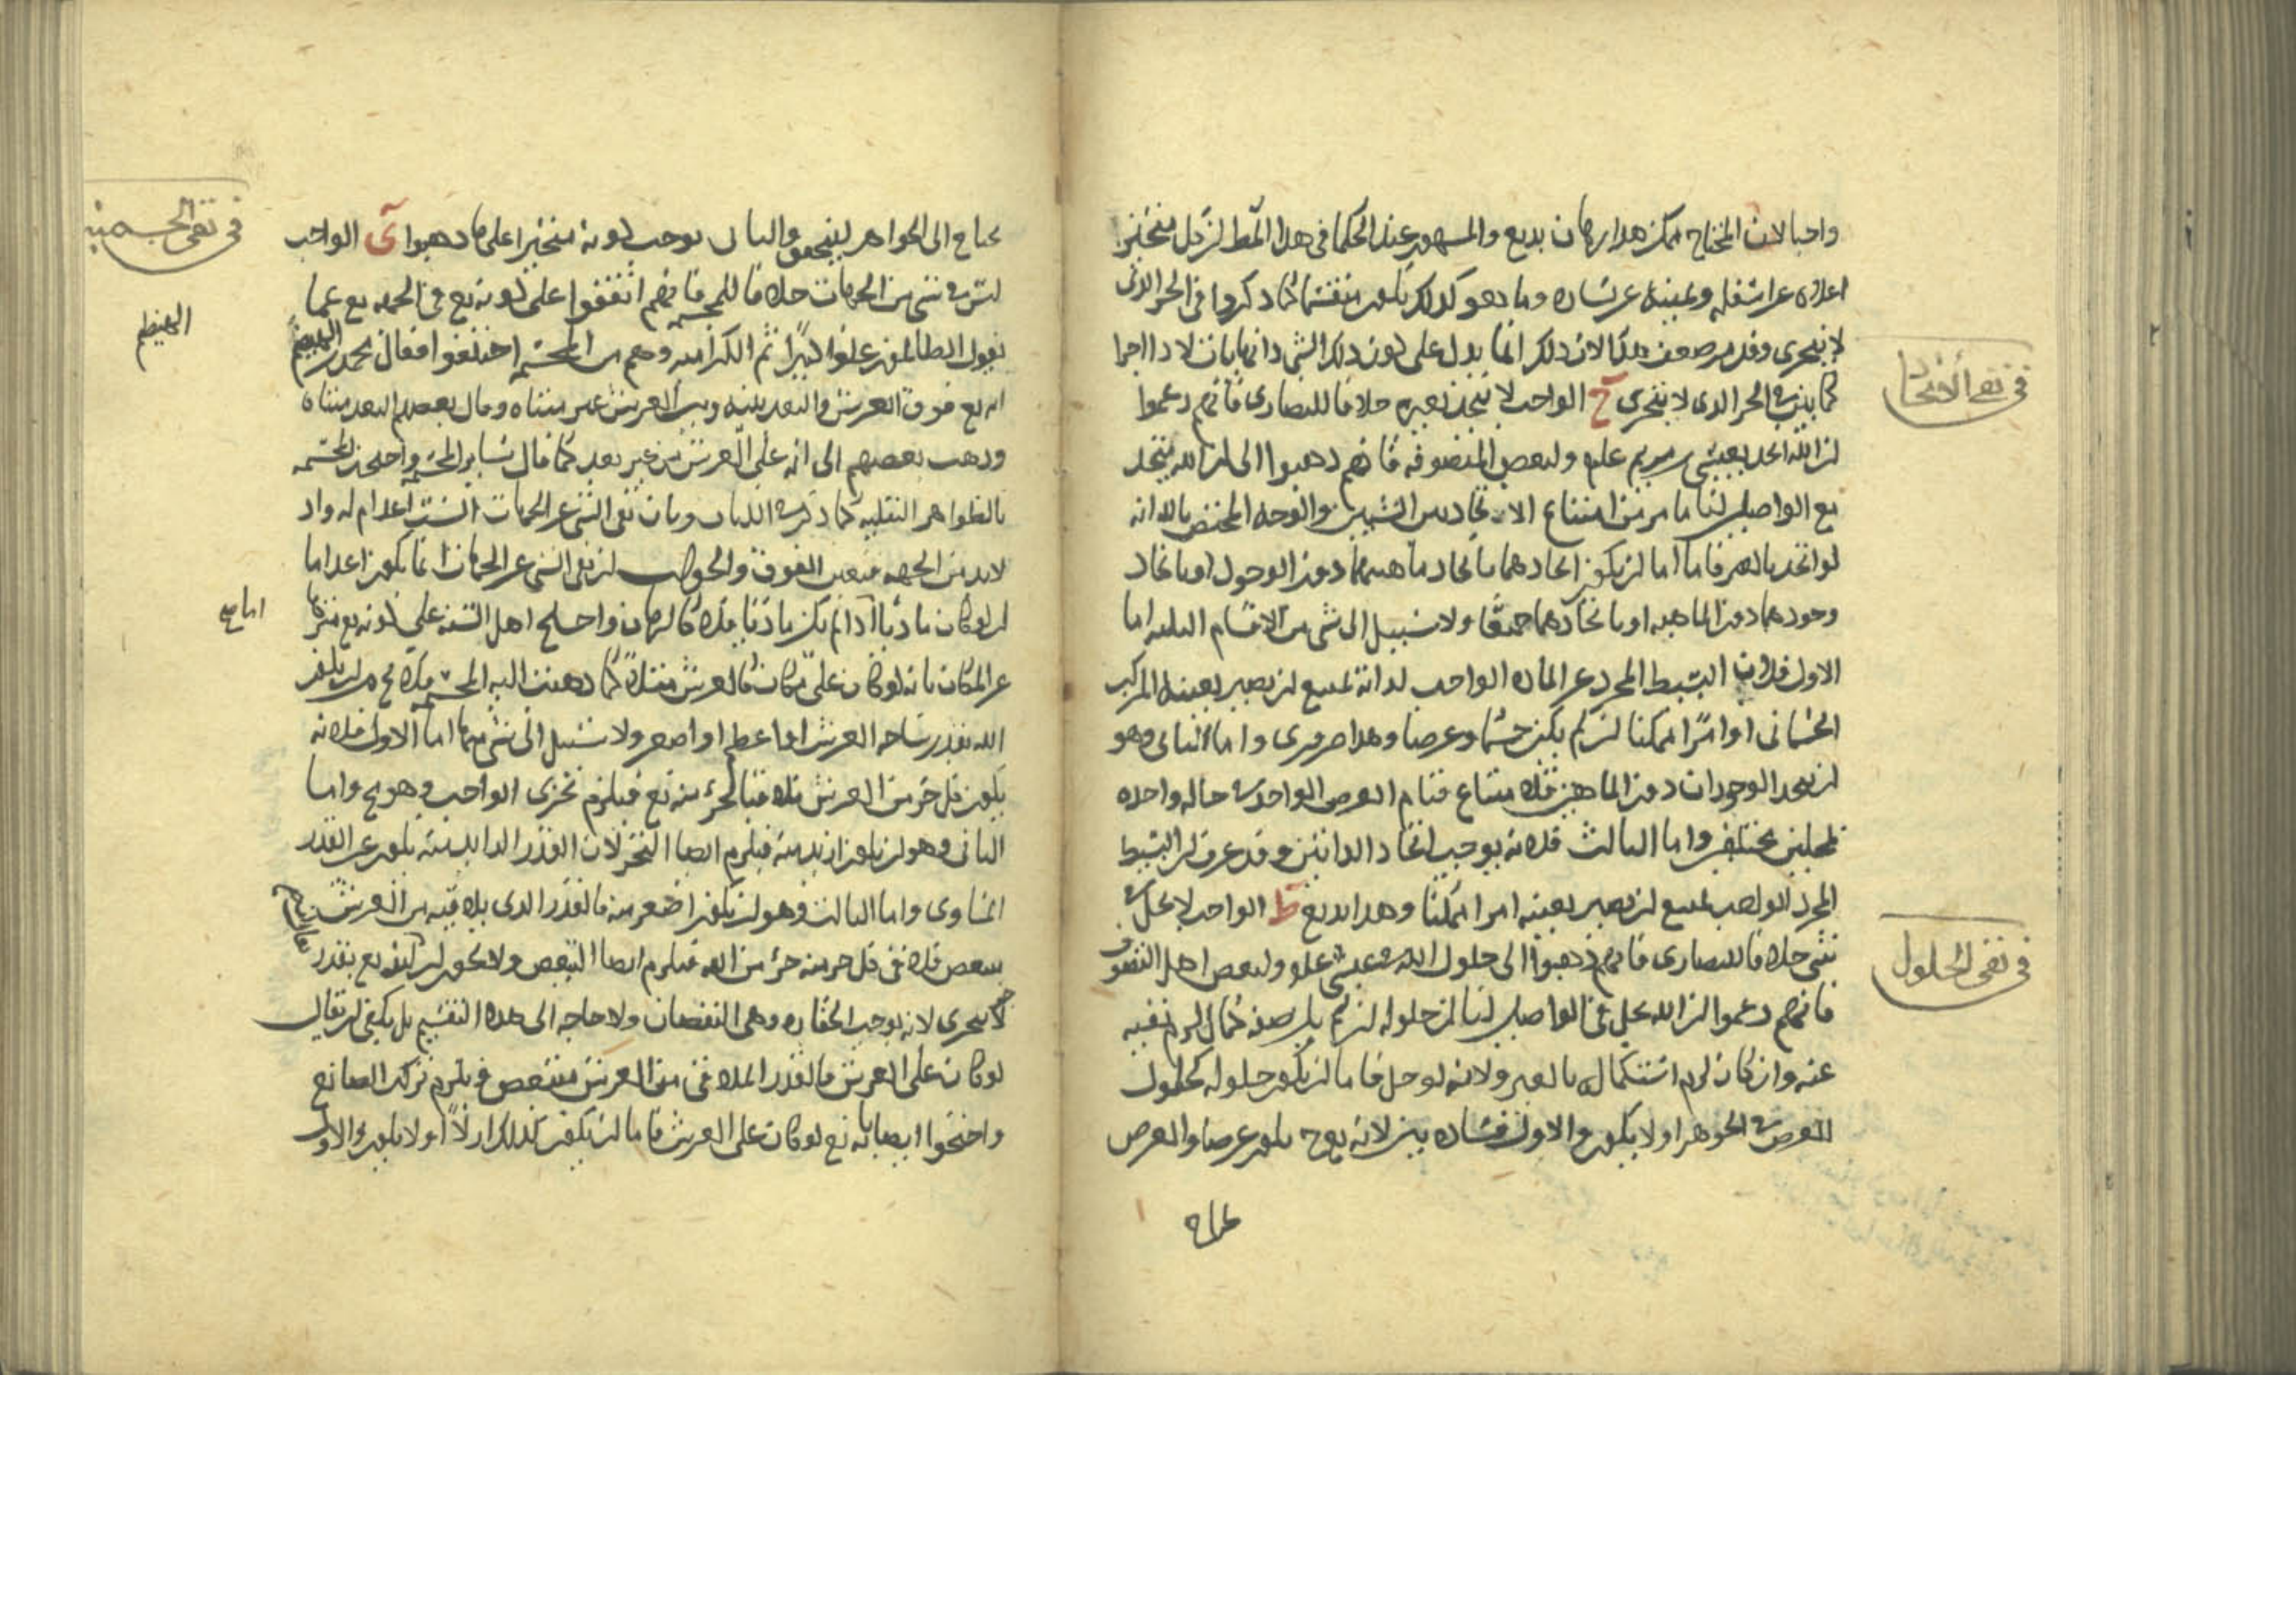 واجبا لان المحتاج ممكن هذا برهان بديع والمشهور عند الحكما في هذا المط لن كل متحيز
اعلاه غير اسفله ويمينه غير يساره وما هو كذلك يكون منقسما كما ذكروا في الجز الذى
لا يتجزى وقد مر ضعف هذا لان ذلك انما يدل على كون ذلك الشى ذا نهايات لا ذا اجزا
كما بين في الجز الذى لا يتجزى ح الواجب لا يتحد بغيره خلافا للنصارى فانهم زعموا
لن الله اتحد بعيسى بن مريم علم ولبعض المتصوفه فانهم ذهبوا الى لن الله يتحد
مع الواصلين لنا ما مر من امتناع الاتحاد بين الشيين والوجه المختص بالله انه
لو اتحد بالغير فاما لن يكون اتحادهما باتحاد ماهيتهما دون الوجود او باتحاد
وجودهما دون الماهيه او باتحادهما جميعا ولا سبيل الى شى من الاقسام الثلثه اما
الاول فلان البسيط المجرد عن الماده الواجب لذاته يمتنع لن يصير بعينه المركب
الجسمانى او امرا ممكنا لن لم يكن جسما وعرضا وهذا ضرورى واما الثانى وهو
لن يتحد الوجودان دون الماهيتين فلامتناع قيام العرض الواحد في حاله واحده
بمحلين مختلفين واما الثالث فلانه يوجب اتحاد الذاتين وقد عرف لن البسيط
المجرد الواجب يمتنع لن يصير بعينه امرا ممكنا وهذا بديع ط الواجب لا يحل في
شى خلافا للنصارى فانهم ذهبوا الى حلول الله في عيسى علم ولبعض اهل التصوف
فانهم زعموا لن الله يحل في الواصلين لنا لن حلوله لن لم يكن صفه كمال لزم نفيه
عنه وان كان لزم استكماله بالغير ولانه لو حل فاما لن يكون حلوله كحلول
العرض في الجوهر او لا يكون والاول فساده بين لانه يوح يكون عرضا والعرض
في نفى الاتحاد
في نفى الحلول
يحتاج الى الجواهر ليتحقق والثانى يوجب كونه متحيزا على ما ذهبوا ى الواجب
ليس في شى من الجهات خلافا للمجسمه فانهم اتفقوا على كونه تع في الجهه تع عما
يقول الظالمون علوا كبيرا ثم الكراميه وهم من المجسمه اختلفوا فقال محمد بن الهيضم
انه تع فوق العرش والبعد بينه وبين العرش غير متناه وقال بعضهم البعد متناه
وذهب بعضهم الى انه على العرش من غير بعد كما قال ساير المجسمه واحتجت المجسمه
بالظواهر النقليه كما ذكر في الكتاب وبان نفى الشى عن الجهات الست اعدام له واذ
لا بد من الجهه فتعين الفوق والجواب لن نفى الشى عن الجهات انما يكون اعداما
لن لو كان ماديا اذا لم يكن ماديا فلا كالزمان واحتج اهل السنه على كونه تع منزها
عن المكان بانه لو كان على مكان كالعرش مثلا كما ذهبت اليه المجسمه فلا يخ من لن يكون
الله بقدر ساحه العرش او اعظم او اصغر ولا سبيل الى شى منها اما الاول فلانه
يكون كل جز من العرش ملاقيا لجزء منه تع فيلزم تجزى الواجب وهو مح واما
الثانى وهو لن يكون ازيد منه فيلزم ايضا التجز لان القدر الزايد منه يكون غير القدر
المساوى واما الثالث وهو لن يكون اصغر منه فالقدر الذى يلاقيه من العرش
يتبعض فلاقى كل جز منه جزء من الله فيلزم ايضا التبعض ولا يجوز لن يكون تع بقدر
لا يتجزى لانه يوجب الحقاره وهى النقصان ولا حاجه الى هذه التقسيم بل يكفى لن يقال
لو كان على العرش فالقدر الملاقى من العرش متبعض فيلزم تركب الصانع
واحتجوا ايضا بانه تع لو كان على العرش فاما لن يكون كذلك ازلا او لا يكون والاول
في نفى الجسميه
الهيضم